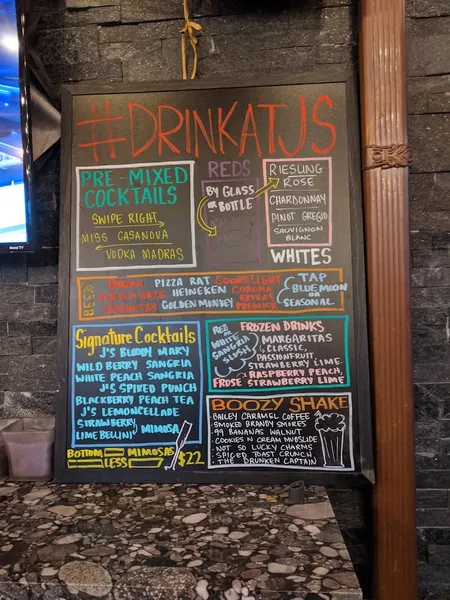 #DRINKATJS
PRE-MIXED
COCKTAILS
SWIPE RIGHT
MISS CASANOVA
VODKA MADRAS
REDS
BY GLASS
OR
BOTTLE
RIESLING
ROSE
CHARDONNAY
PINOT GREGIO
SAUVIGNON
BLANC
WHITES
BEER
PIZZA RAT COORS LIGHT
HEINEKEN CORONA
GOLDEN MONKEY
TAP
BLUE MOON
OR
SEASONAL
Signature Cocktails
J'S BLOODY MARY
WILD BERRY SANGRIA
WHITE PEACH SANGRIA
J'S SPIKED PUNCH
BLACKBERRY PEACH TEA
J'S LEMONCELLADE
STRAWBERRY
LIME BELLINI MIMOSA
BOTTOM MIMOSAS
LESS $22
RED
OR
WHITE
SANGRIA
SLUSH
FROZEN DRINKS
MARGARITAS
CLASSIC,
PASSIONFRUIT,
STRAWBERRY LIME
RASPBERRY PEACH,
FROSE STRAWBERRY LIME
BOOZY SHAKE
• BAILEY CARAMEL COFFEE
• SMOKED BRANDY SMORES
• 99 BANANAS WALNUT
• COOKIES N CREAM MUDSLIDE
• NOT SO LUCKY CHARMS
• SPICED TOAST CRUNCH
• THE DRUNKEN CAPTAIN
Roku TV